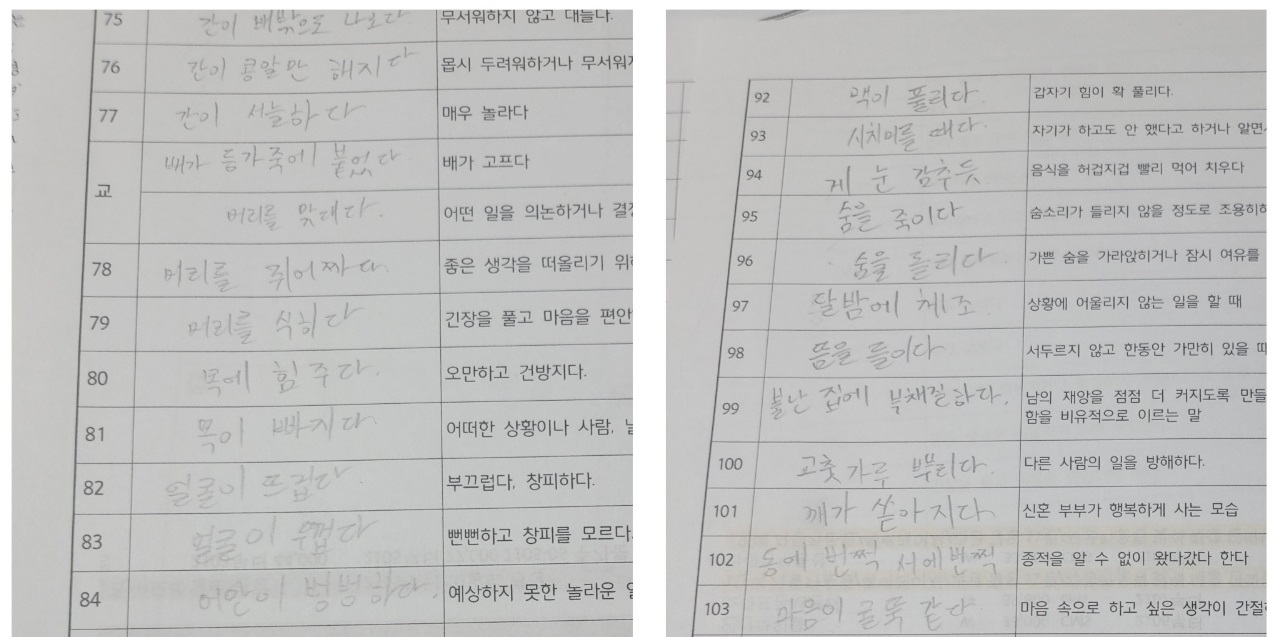 75 간이 배밖으로 나오다 무서워하지 않고 대들다.
76 간이 콩알만 해지다 몹시 두려워하거나 무서워
77 간이 서늘하다 매우 놀라다
교 배가 등가죽에 붙었다 배가 고프다
머리를 맞대다. 어떤 일을 의논하거나
78 머리를 쥐어짜다. 좋은 생각을 떠올리기
79 머리를 식히다 긴장을 풀고 마음을 편안
80 목에 힘 주다. 오만하고 건방지다.
81 목이 빠지다. 어떠한 상황이나 사람,
82 얼굴이 뜨겁다 부끄럽다, 창피하다.
83 얼굴이 두껍다 뻔뻔하고 창피를 모르다.
84 어안이 벙벙하다. 예상하지 못한 놀라운
92 맥이 풀리다. 갑자기 힘이 확 풀리다.
93 시치미를 떼다. 자기가 하고도 안 했다고 하거나 알면
94 게 눈 감추듯 음식을 허겁지겁 빨리 먹어 치우다
95 숨을 죽이다 숨소리가 들리지 않을 정도로 조용히
96 숨을 돌리다. 가쁜 숨을 가라앉히거나 잠시 여유를
97 달밤에 체조 상황에 어울리지 않는 일을 할 때
98 뜸을 들이다 서두르지 않고 한동안 가만히 있을 때
99 불난 집에 부채질하다. 남의 재앙을 점점 더 커지도록 만들
함을 비유적으로 이르는 말
100 고춧가루 뿌리다. 다른 사람의 일을 방해하다.
101 깨가 쏟아지다. 신혼 부부가 행복하게 사는 모습
102 동에 번쩍 서에번쩍 종적을 알 수 없이 왔다갔다 한다
103 마음이 굴뚝 같다. 마음 속으로 하고 싶은 생각이